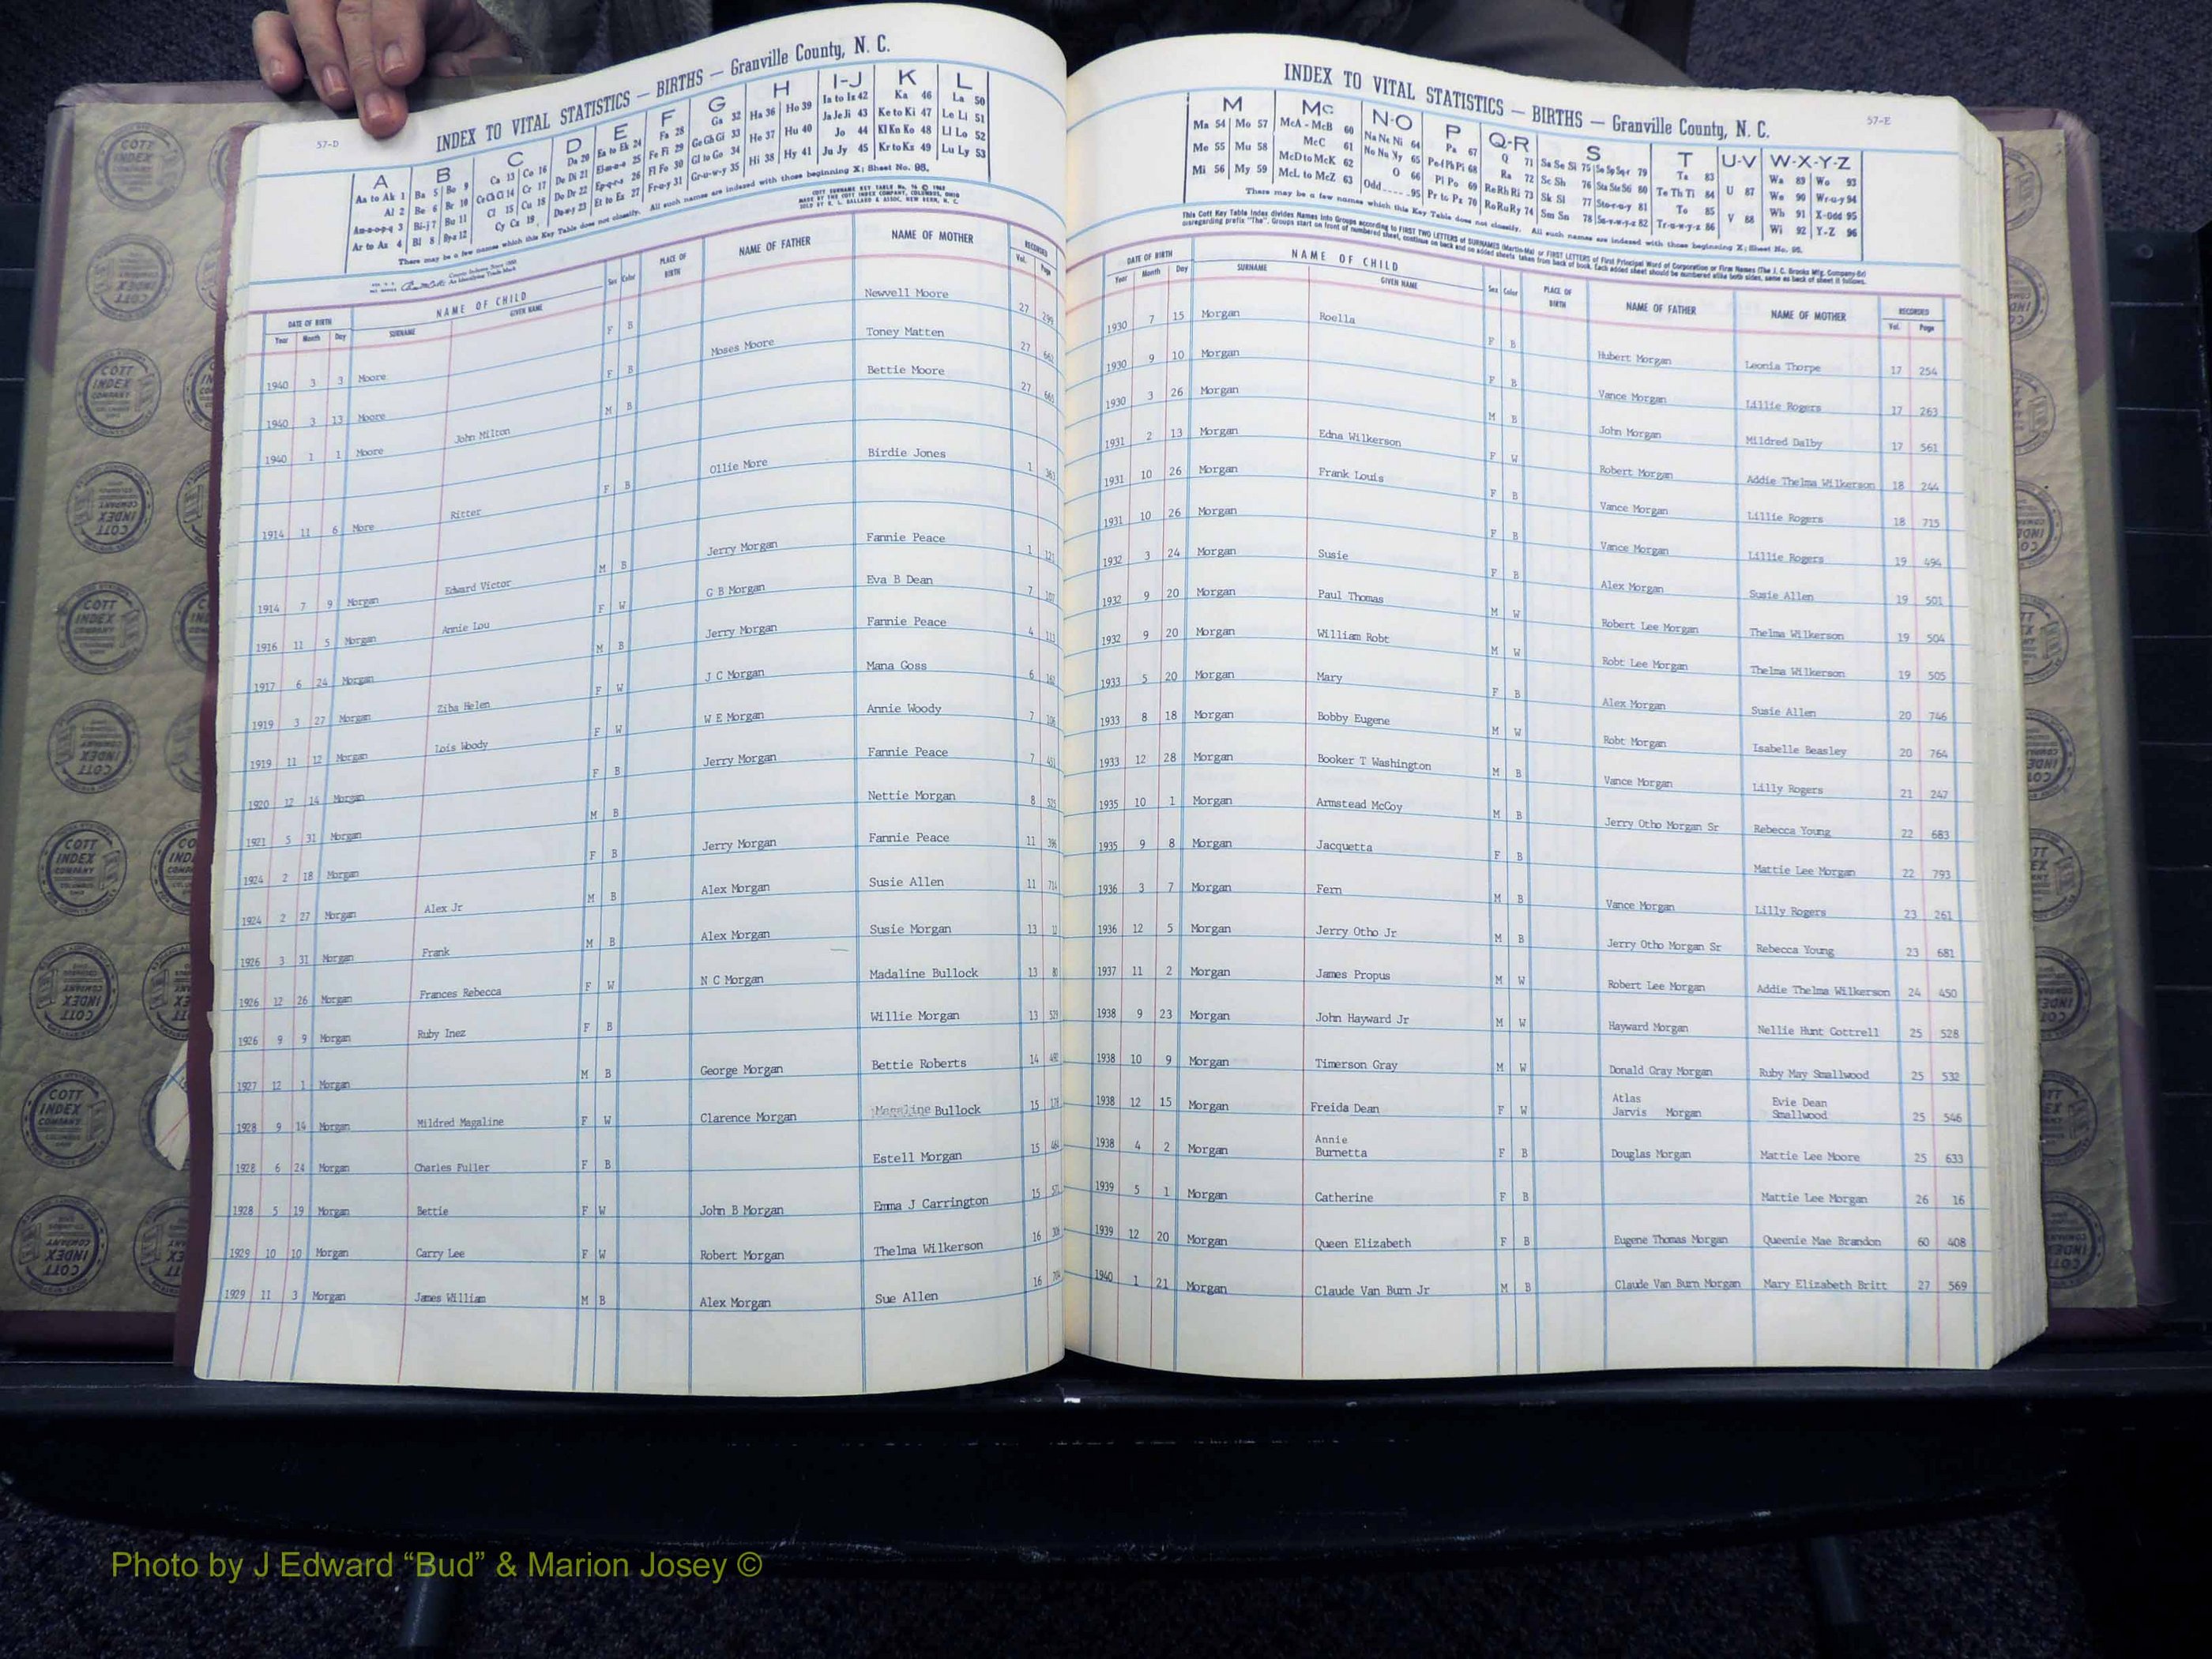 57-D
INDEX TO VITAL STATISTICS — BIRTHS — Granville County, N. C.
A B C D E F G H I-J K L
Aa to Ak 1 Ba 5 Bo 9 Ca 13 Co 16 Da 20 Ea to Ek 24 Fa 28 Ga 32 Ha 36 Ho 39 Ia to Iz 42 Ka 46 La 50
Al 2 Be 6 Br 10 Ce Ch Ci 14 Cr 17 De Di 21 El-m-n-o 25 Fe Fi 29 Ge Gh Gi 33 He 37 Hu 40 Ja Je Ji 43 Ke to Ki 47 Le Li 51
Am-n-o-p-q 3 Bi-j 7 Bu 11 Cl 15 Cu 18 Do Dr 22 Ep-q-r-s 26 Fl Fo 30 Gl to Go 34 Hi 38 Hy 41 Jo 44 Kl Kn Ko 48 Ll Lo 52
Ar to Az 4 Bl 8 Bya 12 Cy Cz 19 Du-w-y 23 Et to Ez 27 Fr-u-y 31 Gr-u-w-y 35 Ju Jy 45 Kr to Kz 49 Lu Ly 53
There may be a few names which this Key Table does not classify. All such names are indexed with those beginning X; Sheet No. 98.
DATE OF BIRTH NAME OF CHILD Sex Color PLACE OF BIRTH NAME OF FATHER NAME OF MOTHER RECORDED
Year Month Day SURNAME GIVEN NAME Vol. Page
1940 3 3 Moore F B Newvell Moore 27 299
1940 3 13 Moore F B Moses Moore Toney Matten 27
1940 1 1 Moore John Milton M B Bettie Moore 27 665
1914 11 6 More Ritter F B Ollie More Birdie Jones 1 363
1914 7 9 Morgan Edward Victor M B Jerry Morgan Fannie Peace 1 121
1916 11 5 Morgan Annie Lou F W G B Morgan Eva B Dean 7
1917 6 24 Morgan M B Jerry Morgan Fannie Peace 4 113
1919 3 27 Morgan Ziba Helen F W J C Morgan Mana Goss 6
1919 11 12 Morgan Lois Woody F W W E Morgan Annie Woody 7
1920 12 14 Morgan F B Jerry Morgan Fannie Peace 7
1921 5 31 Morgan M B Nettie Morgan 8
1924 2 18 Morgan F B Jerry Morgan Fannie Peace 11
1924 2 27 Morgan Alex Jr M B Alex Morgan Susie Allen 11
1926 3 31 Morgan Frank M B Alex Morgan Susie Morgan 13
1926 12 26 Morgan Frances Rebecca F W N C Morgan Madaline Bullock 13
1926 9 9 Morgan Ruby Inez F B Willie Morgan 13
1927 12 1 Morgan M B George Morgan Bettie Roberts 14
1928 9 14 Morgan Mildred Magaline F W Clarence Morgan Magaline Bullock 15
1928 6 24 Morgan Charles Fuller F B Estell Morgan 15
1928 5 19 Morgan Bettie F W John B Morgan Emma J Carrington 15
1929 10 10 Morgan Carry Lee F W Robert Morgan Thelma Wilkerson 16
1929 11 3 Morgan James William M B Alex Morgan Sue Allen 16
57-E
INDEX TO VITAL STATISTICS — BIRTHS — Granville County, N. C.
M Mc N-O P Q-R S T U-V W-X-Y-Z
Ma 54 Mo 57 McA - McB 60 Na Ne Ni 64 Pa 67 Q 71 Sa Se Si 75 Ta 83 Wa 89 Wo 93
Me 55 Mu 58 McC 61 No Nu Ny 65 Pe-f Ph Pi 68 Ra 72 Sc Sh 76 Sta Ste St 80 Te Th Ti 84 U 87 We 90 Wr-u-y 94
Mi 56 My 59 McD to McK 62 O 66 Pl Po 69 Re Rh Ri 73 Sk Sl 77 Sto-r-u-y 81 To 85 V 88 Wh 91 X-Odd 95
McL to McZ 63 Odd 95 Pr to Pz 70 Ro Ru Ry 74 Sm Sn 78 Su-v-w-y-z 82 Tr-u-w-y-z 86 Wi 92 Y-Z 96
There may be a few names which this Key Table does not classify. All such names are indexed with those beginning X; Sheet No. 98.
DATE OF BIRTH NAME OF CHILD Sex Color PLACE OF BIRTH NAME OF FATHER NAME OF MOTHER RECORDED
Year Month Day SURNAME GIVEN NAME Vol. Page
1930 7 15 Morgan Roella F B Hubert Morgan Leonia Thorpe 17 254
1930 9 10 Morgan F B Vance Morgan Lillie Rogers 17 263
1930 3 26 Morgan M B John Morgan Mildred Dalby 17 561
1931 2 13 Morgan Edna Wilkerson F W Robert Morgan Addie Thelma Wilkerson 18 244
1931 10 26 Morgan Frank Louis F B Vance Morgan Lillie Rogers 18 715
1931 10 26 Morgan F B Vance Morgan Lillie Rogers 19 494
1932 3 24 Morgan Susie F B Alex Morgan Susie Allen 19 501
1932 9 20 Morgan Paul Thomas M W Robert Lee Morgan Thelma Wilkerson 19 504
1932 9 20 Morgan William Robt M W Robt Lee Morgan Thelma Wilkerson 19 505
1933 5 20 Morgan Mary F B Alex Morgan Susie Allen 20 746
1933 8 18 Morgan Bobby Eugene M W Robt Morgan Isabelle Beasley 20 764
1933 12 28 Morgan Booker T Washington M B Vance Morgan Lilly Rogers 21 247
1935 10 1 Morgan Armstead McCoy M B Jerry Otho Morgan Sr Rebecca Young 22 683
1935 9 8 Morgan Jacquetta F B Mattie Lee Morgan 22 793
1936 3 7 Morgan Fern M B Vance Morgan Lilly Rogers 23 261
1936 12 5 Morgan Jerry Otho Jr M B Jerry Otho Morgan Sr Rebecca Young 23 681
1937 11 2 Morgan James Propus M W Robert Lee Morgan Addie Thelma Wilkerson 24 450
1938 9 23 Morgan John Hayward Jr M W Hayward Morgan Nellie Hunt Cottrell 25 528
1938 10 9 Morgan Timerson Gray M W Donald Gray Morgan Ruby May Smallwood 25 532
Atlas Evie Dean
1938 12 15 Morgan Freida Dean F W Jarvis Morgan Smallwood 25 546
Annie
1938 4 2 Morgan Burnetta F B Douglas Morgan Mattie Lee Moore 25 633
1939 5 1 Morgan Catherine F B Mattie Lee Morgan 26 16
1939 12 20 Morgan Queen Elizabeth F B Eugene Thomas Morgan Queenie Mae Brandon 60 408
1940 1 21 Morgan Claude Van Burn Jr M B Claude Van Burn Morgan Mary Elizabeth Britt 27 569
COTT
INDEX
COMPANY
Photo by J Edward “Bud” & Marion Josey ©